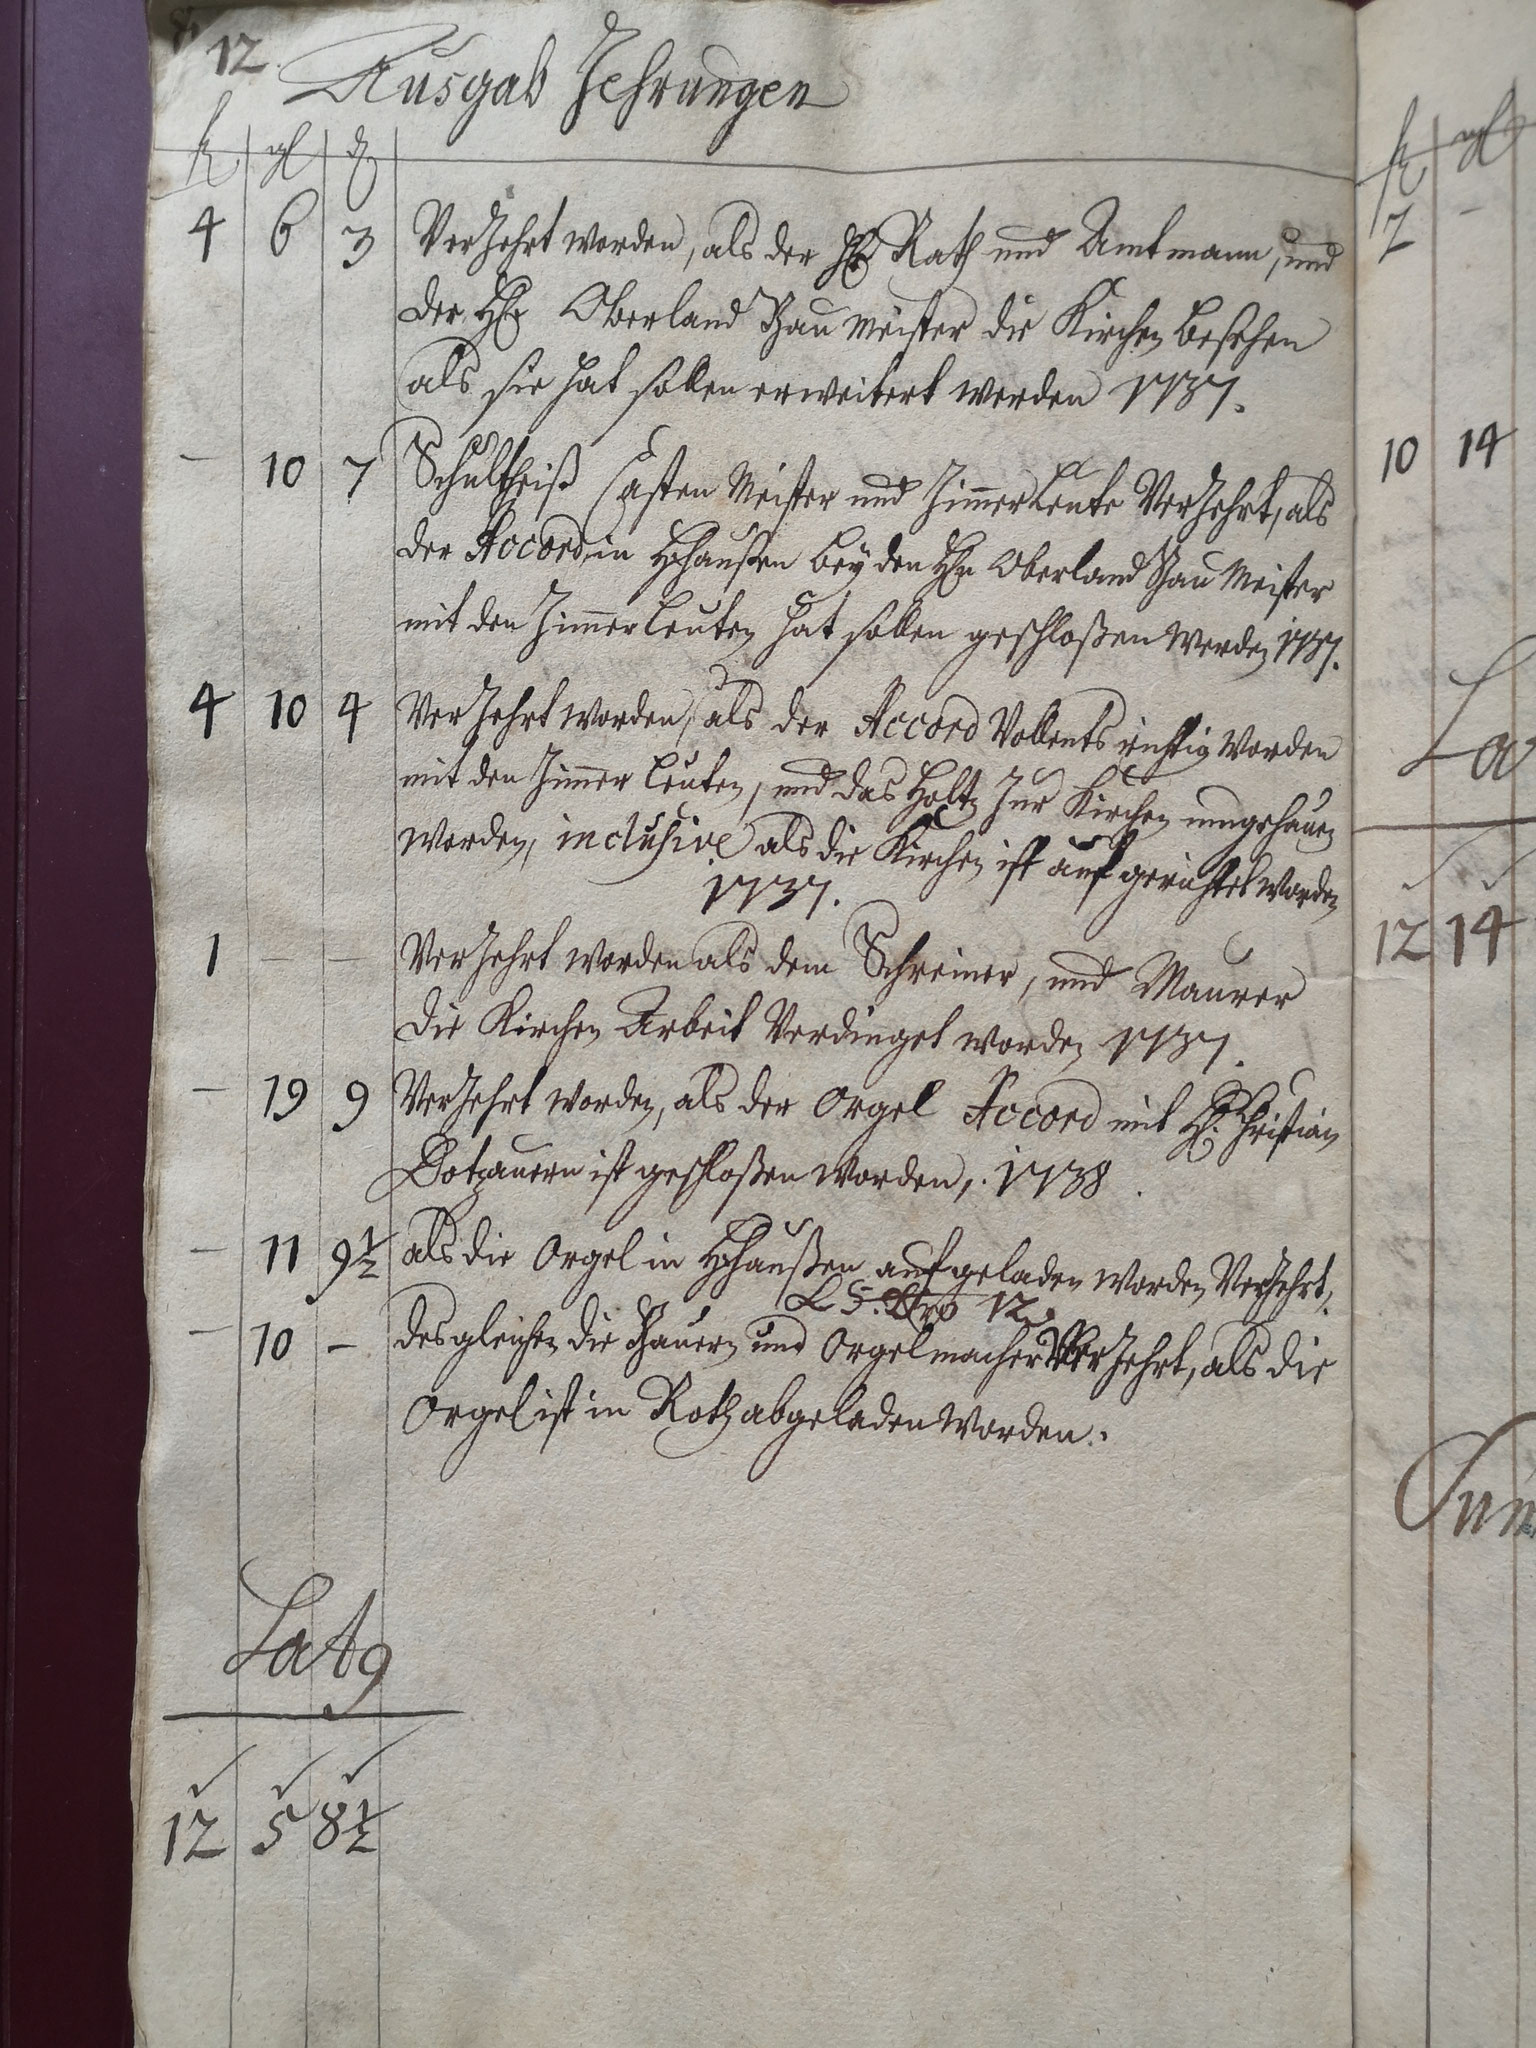 12.
Ausgab Zehrungen
fl gl d
4 6 3 Verzehrt worden, als der Hr. Rath und Amtmann, und
der Hr. Oberland Bau Meister die Kirchen besehen
als sie hat sollen erweitert werden 1737.
– 10 7 Schultheiß Casten Meister und Zimmer Leute Verzehrt, als
der Accord in Hhaußen bey den Hn. Oberland Bau Meister
mit den Zimmer Leuten hat sollen geschloßen werden 1737.
4 10 4 Verzehrt worden, als der Accord Vollents richtig worden
mit den Zimmer Leuten, und das Holtz zur Kirchen umgehauen
worden, inclusive als die Kirchen ist auf gerichtet worden
1737.
1 – – Verzehrt worden als dem Schreiner, und Maurer
die Kirchen Arbeit Verdinget worden 1737.
– 19 9 Verzehrt worden, als der Orgel Accord mit H. Christian
Dotzauern ist geschloßen worden, 1738.
– 11 9½ als die Orgel in Hhaußen auf geladen worden Verzehrt,
L S. Nro 12.
– 10 – desgleichen die Bauern und Orgelmacher Verzehrt, als die
Orgel ist in Roth abgeladen worden.
Latq
12 5 8½
fl gl
7 –
10 14
La
12 14
Sum